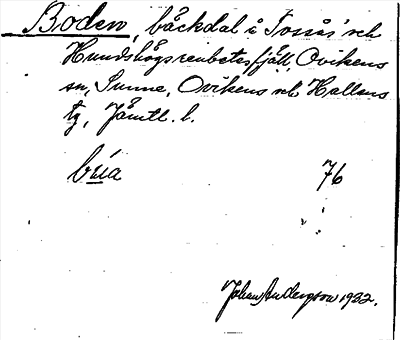 Boden, bäckdal i Tossås' och
Hundshögs renbetesfjäll, Ovikens
sn, Sunne, Ovikens och Hallens
tg, Jämtl. l.
76
Johan Anderson 1922.